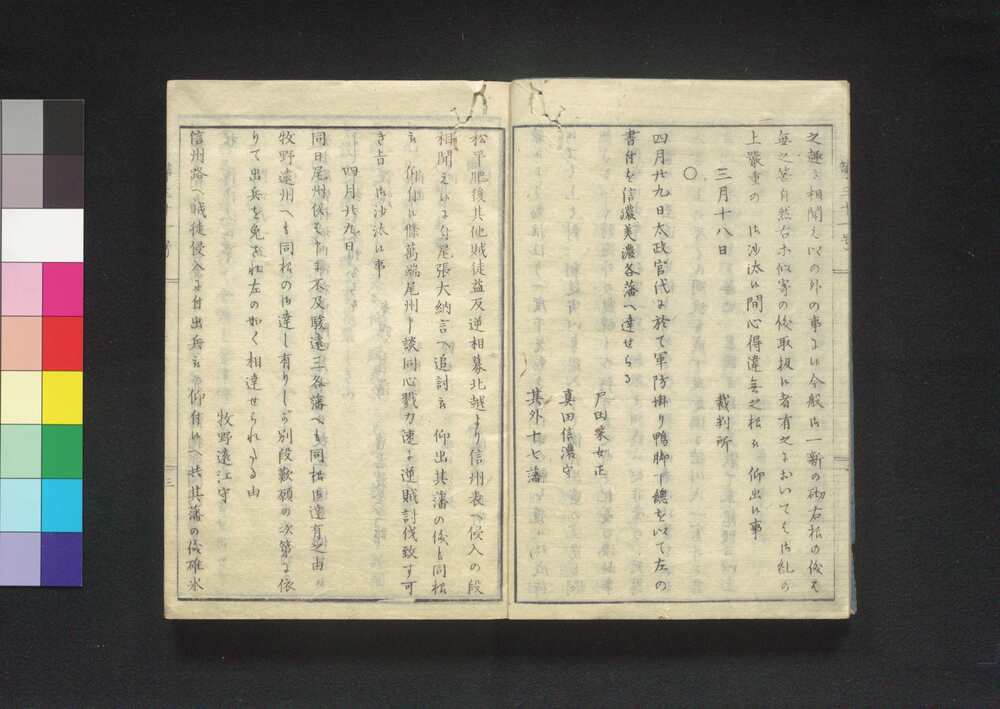 之趣ニ相聞え以の外の事に候今般御一新の砌右様の儀は
無之筈自然右等似寄の儀取扱候者有之においては御糺の
上嚴重の　御沙汰候間心得違無之様被　仰出候事
三月十八日　裁判所
○
四月廿九日太政官代に於て軍防掛り鴨脚下總を以て左の
書付を信濃美濃各藩へ達せらる
戸田采女正
真田信濃守
其外十七藩
松平肥後其他賊徒益反逆相募北越より信州表へ侵入の段
相聞え候に付尾張大納言へ追討被　仰出其藩の儀も同様
被　仰付候條萬端尾州申談同心戮力速に逆賊討伐致す可
き旨　御沙汰候事
四月廿九日
同日尾州侯は申に不及駿遠三各藩へも同様御達有之由
牧野遠州へも同様の御達し有りしが別段歎願の次第に依
りて出兵を免され左の如く相達せられたる由
牧野遠江守
信州路へ賊徒侵入に付出兵被　仰付候へ共其藩の儀碓氷